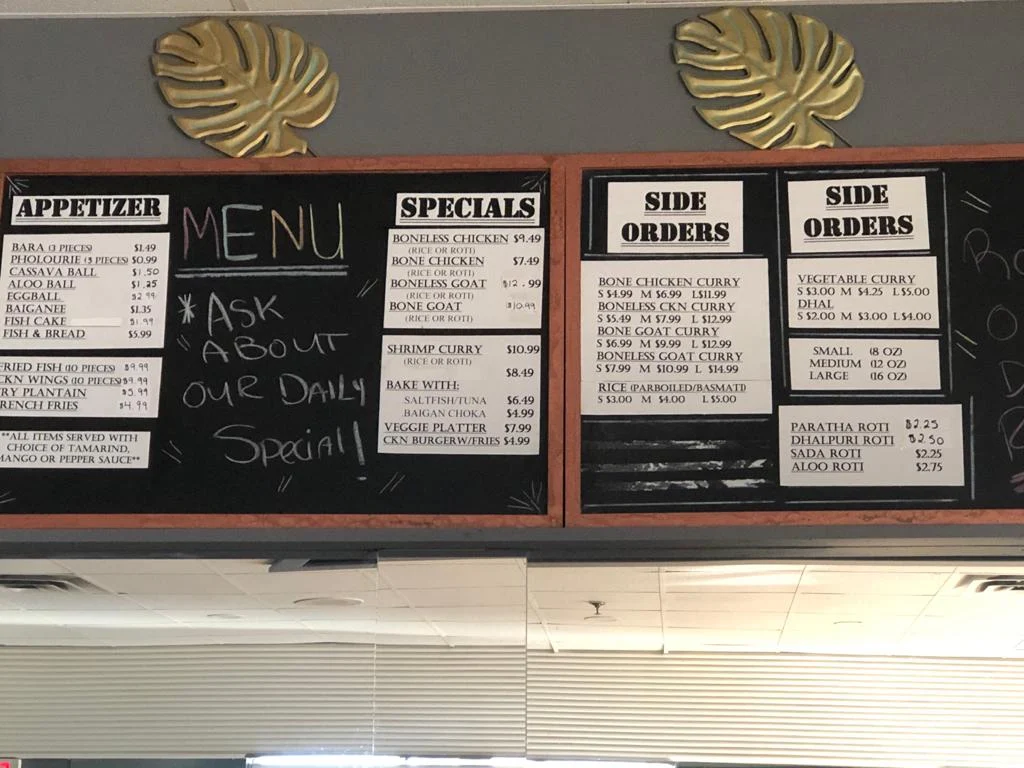 APPETIZER
BARA (3 PIECES) $1.49
PHOLOURIE (3 PIECES) $0.99
CASSAVA BALL $1.50
ALOO BALL $1.25
EGGBALL $2.99
BAIGANEE $1.35
FISH CAKE $1.99
FISH & BREAD $5.99
FRIED FISH (10 PIECES) $9.99
CKN WINGS (10 PIECES) $9.99
FRY PLANTAIN $5.99
FRENCH FRIES $4.99
**ALL ITEMS SERVED WITH
CHOICE OF TAMARIND,
MANGO OR PEPPER SAUCE**
MENU
*ASK
ABOUT
OUR DAILY
Special!
SPECIALS
BONELESS CHICKEN $9.49
(RICE OR ROTI)
BONE CHICKEN $7.49
(RICE OR ROTI)
BONELESS GOAT $12.99
(RICE OR ROTI)
BONE GOAT $10.99
(RICE OR ROTI)
SHRIMP CURRY $10.99
(RICE OR ROTI)
$8.49
BAKE WITH:
SALTFISH/TUNA $6.49
BAIGAN CHOKA $4.99
VEGGIE PLATTER $7.99
CKN BURGERW/FRIES $4.99
SIDE
ORDERS
BONE CHICKEN CURRY
S $4.99 M $6.99 L$11.99
BONELESS CKN CURRY
S $5.49 M $7.99 L $12.99
BONE GOAT CURRY
S $6.99 M $9.99 L $12.99
BONELESS GOAT CURRY
S $7.99 M $10.99 L $14.99
RICE (PARBOILED/BASMATI)
S $3.00 M $4.00 L $5.00
SIDE
ORDERS
VEGETABLE CURRY
S $3.00 M $4.25 L $5.00
DHAL
S $2.00 M $3.00 L $4.00
SMALL (8 OZ)
MEDIUM (12 OZ)
LARGE (16 OZ)
PARATHA ROTI $2.25
DHALPURI ROTI $2.50
SADA ROTI $2.25
ALOO ROTI $2.75